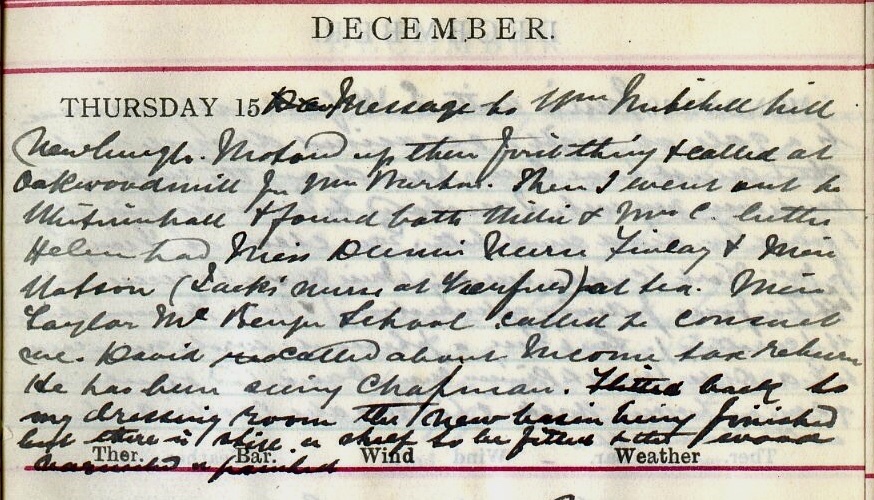 DECEMBER.
THURSDAY 15 Message to Wm Mitchell hill
Newburgh. Motored up there first thing & called at
Oakwoodmill for Mrs. Then I went out to
& found both Millie & Mrs C. better
Helen had Miss Nurse Finlay & Miss
Watson (Jack's nurse at) at tea. Miss
Taylor School called to consult
me. David called about Income tax return
He has been seeing Chapman. Flitted back to
my dressing room the new basin being finished
but there is still a shelf to be fitted & the wood
varnished & painted
Ther. Bar. Wind Weather